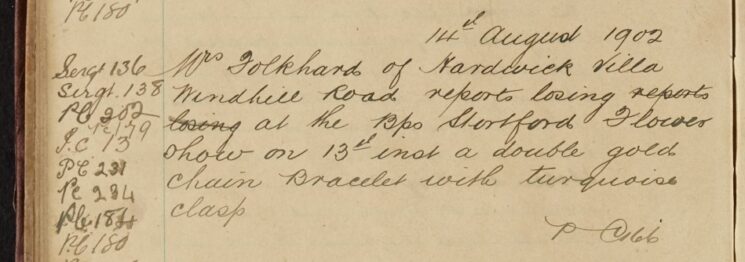 PC 180
14th August 1902
Sergt 136 Mrs Folkhard of Hardwick Villa
Sergt. 138 Windhill Road reports losing reports
PC 202 losing at the Bps Stortford Flower
Pc 179
P.C 13 Show on 13th inst a double gold
PC 231 chain Bracelet with turquoise
Pc 284 clasp
P Cobb
P.C 180